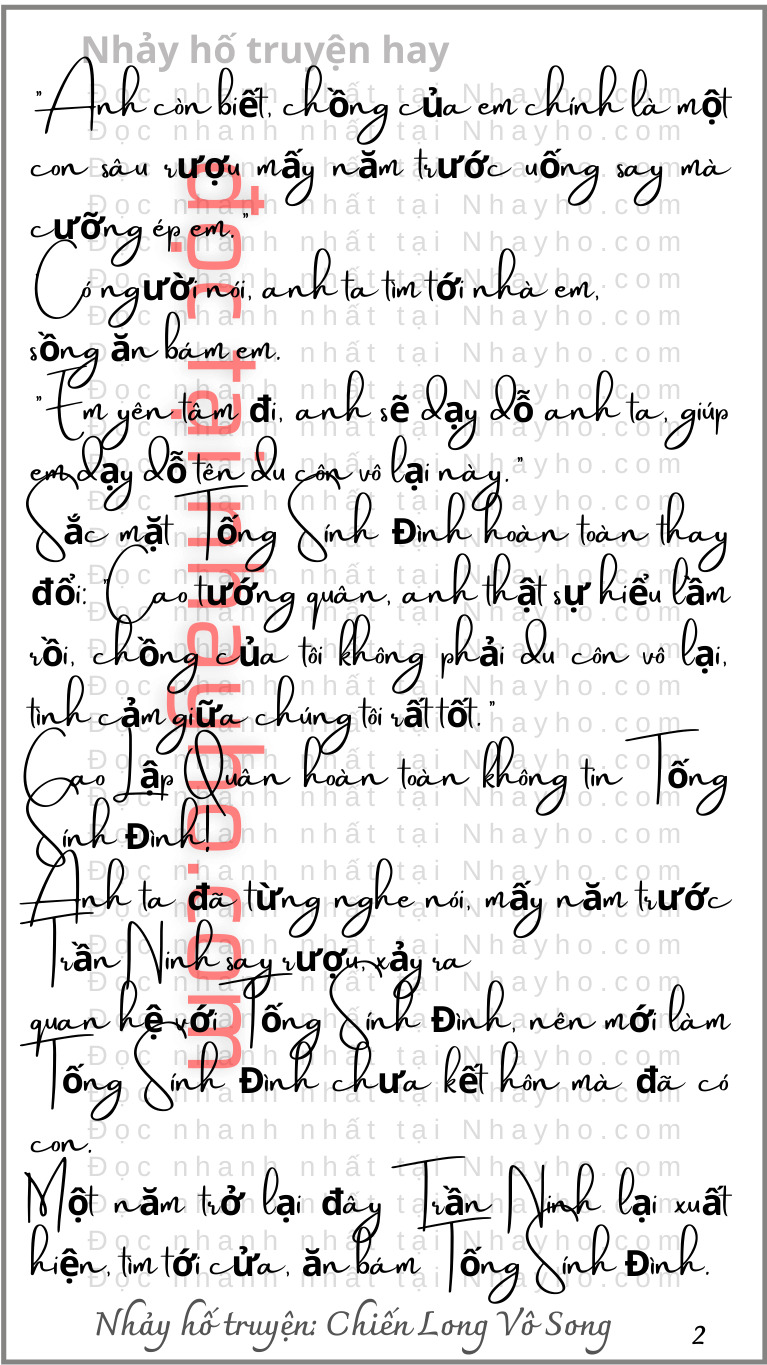 Nhảy hố truyện hay
"Anh còn biết, chồng của em chính là một
con sâu rượu mấy năm trước uống say mà
cưỡng ép em."
Có người nói, anh ta tìm tới nhà em,
sống ăn bám em.
"Em yên tâm đi, anh sẽ dạy dỗ anh ta, giúp
em dạy dỗ tên du côn vô lại này."
Sắc mặt Tống Sính Đình hoàn toàn thay
đổi: "Cao tướng quân, anh thật sự hiểu lầm
rồi, chồng của tôi không phải du côn vô lại,
tình cảm giữa chúng tôi rất tốt."
Cao Lập Quân hoàn toàn không tin Tống
Sính Đình!
Anh ta đã từng nghe nói, mấy năm trước
Trần Ninh say rượu, xảy ra
quan hệ với Tống Sính Đình, nên mới làm
Tống Sính Đình chưa kết hôn mà đã có
con.
Một năm trở lại đây Trần Ninh lại xuất
hiện, tìm tới cửa, ăn bám Tống Sính Đình.
đọc tại nhayho.com
Đọc nhanh nhất tại Nhayho.com
Nhảy hố truyện: Chiến Long Vô Song
2